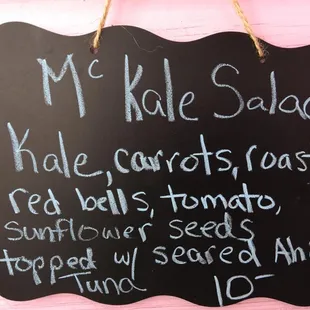 Mc Kale Salad
Kale, carrots, roast
red bells, tomato,
sunflower seeds
topped w/ seared Ahi
Tuna 10-